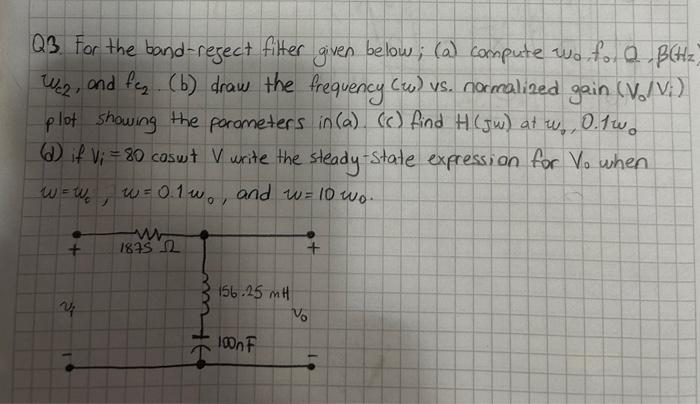 Q3. For the band-reject filter given below; (a) compute ω0, f0, Q, β(Hz),
ωc2, and fc2. (b) draw the frequency (ω) vs. normalized gain (Vo/Vi)
plot showing the parameters in (a). (c) find H(jω) at ωo, 0.1ωo
(d) if Vi = 80 cosωt V write the steady-state expression for Vo when
ω=ωo, ω=0.1ωo, and ω=10ωo.
1875 Ω
+ +
156.25 mH
vi Vo
100nF
- -